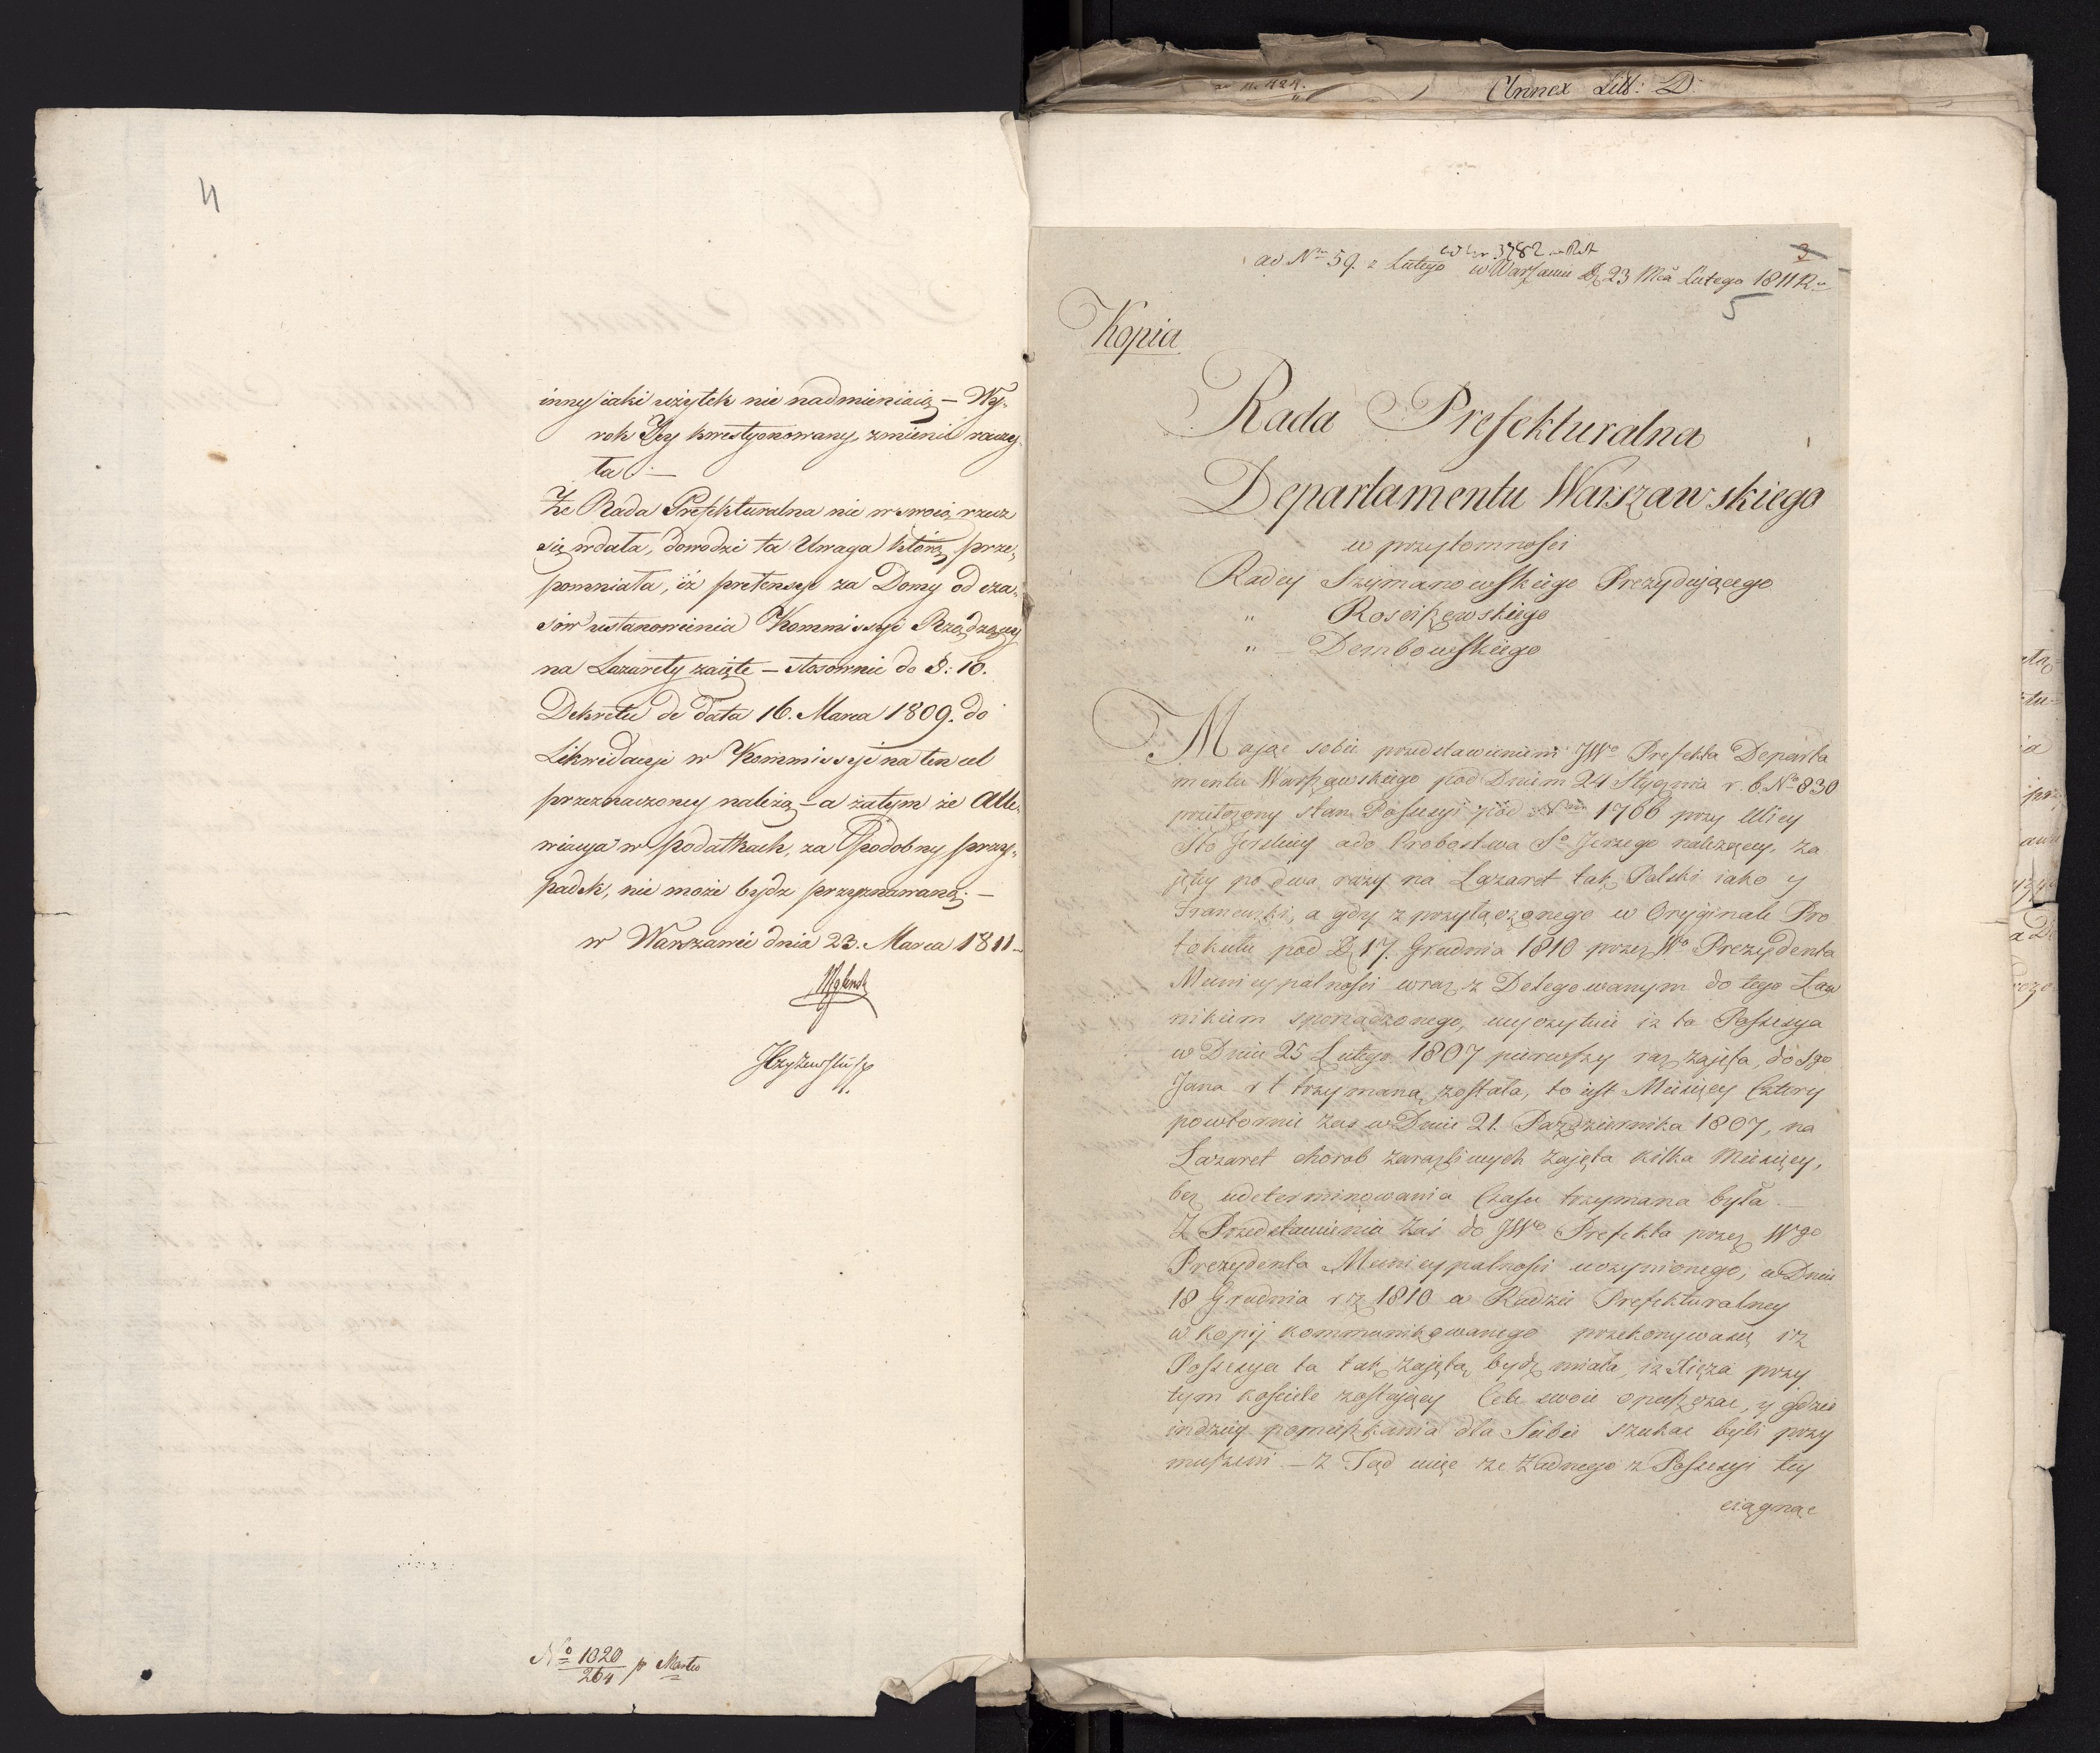 4
inny iaki użytek nie nadmieniaią – Wy-
rok Jey kwestyonowany, zmienić raczy-
ła. –
Że Rada Prefekturalna nie w swoią rzecz
się wdała, dowodzi ta Uwaga którą prze-
pomniała, iż pretensye za Domy od cza-
sów ustanowienia Kommissyi Rządzącey
na Lazarety zaięte – stosownie do §: 10.
Dekretu de data 16. Marca 1809. do
Likwidacyi w Kommissyi na ten cel
przeznaczoney należą – a zatym że Alle-
wiacya w podatkach, za podobny przy-
padek, nie może bydź przyznawaną. –
w Warszawie dnia 23. Marca 1811
No 1020
264 p Martio
Annex Litt: D.
ad Nrm 59. z Lutego w Warszawie D 23 Mca Lutego 1811 R
3
5
Kopia
Rada Prefekturalna
Departamentu Warszawskiego
w przytomności
Radcy Szymanowskiego Prezydującego
" Rosciszewskiego
" – Dembowskiego
Maiąc sobie przedstawieniem JWo Prefekta Departa
mentu Warszawskiego pod Dniem 24 Stycznia r. b. No 830
przełożony stan Possesyi pod Nrm 1766 przy Ulicy
Sto Jerskiey ado Probostwa So Jerzego należącey, za
jętey po dwa razy na Lazaret tak Polski iako y
Francuzki, a gdy z przyłączonego w Oryginale Pro
tokułu pod D 17. Grudnia 1810 przez Wo Prezydenta
Municypalności wraz z Delegowanym do tego Ław
nikiem sporządzonego, wyczytuie iz ta Possesya
w Dniu 25 Lutego 1807 pierwszy raz zajęta, do Sgo
Jana r t trzymaną została, to iest Miesięcy Cztery
powtornie zas w Dniu 21. Pazdziernika 1807, na
Lazaret chorob zarazliwych zajęta kilka Miesięcy,
bez udeterminowania Czasu trzymana była. –
Z Przedstawienia zaś do JWo Prefekta przez Wgo
Prezydenta Municypalności uczynionego, w Dniu
18 Grudnia r z 1810 a Radzie Prefekturalney
w Kopij kommunikowanego przekonywa się iz
Possesya ta tak zajętą bydz miała, iz Xięza przy
tym kościele zostający Cele swoie opuszczać, y gdzie
indziey pomieszkania dla Siebie szukać byli przy
muszeni. – Z Tąd więc ze żadnego z Possesyi tey
ciągnąc